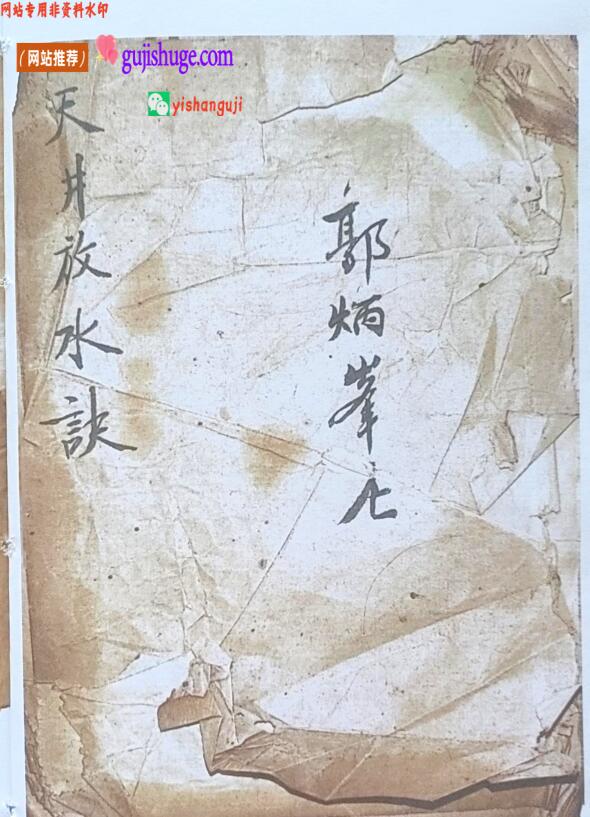 网站专用非资料水印
（网站推荐）
gujishuge.com
yishanguji
天井放水訣
郭炳峯